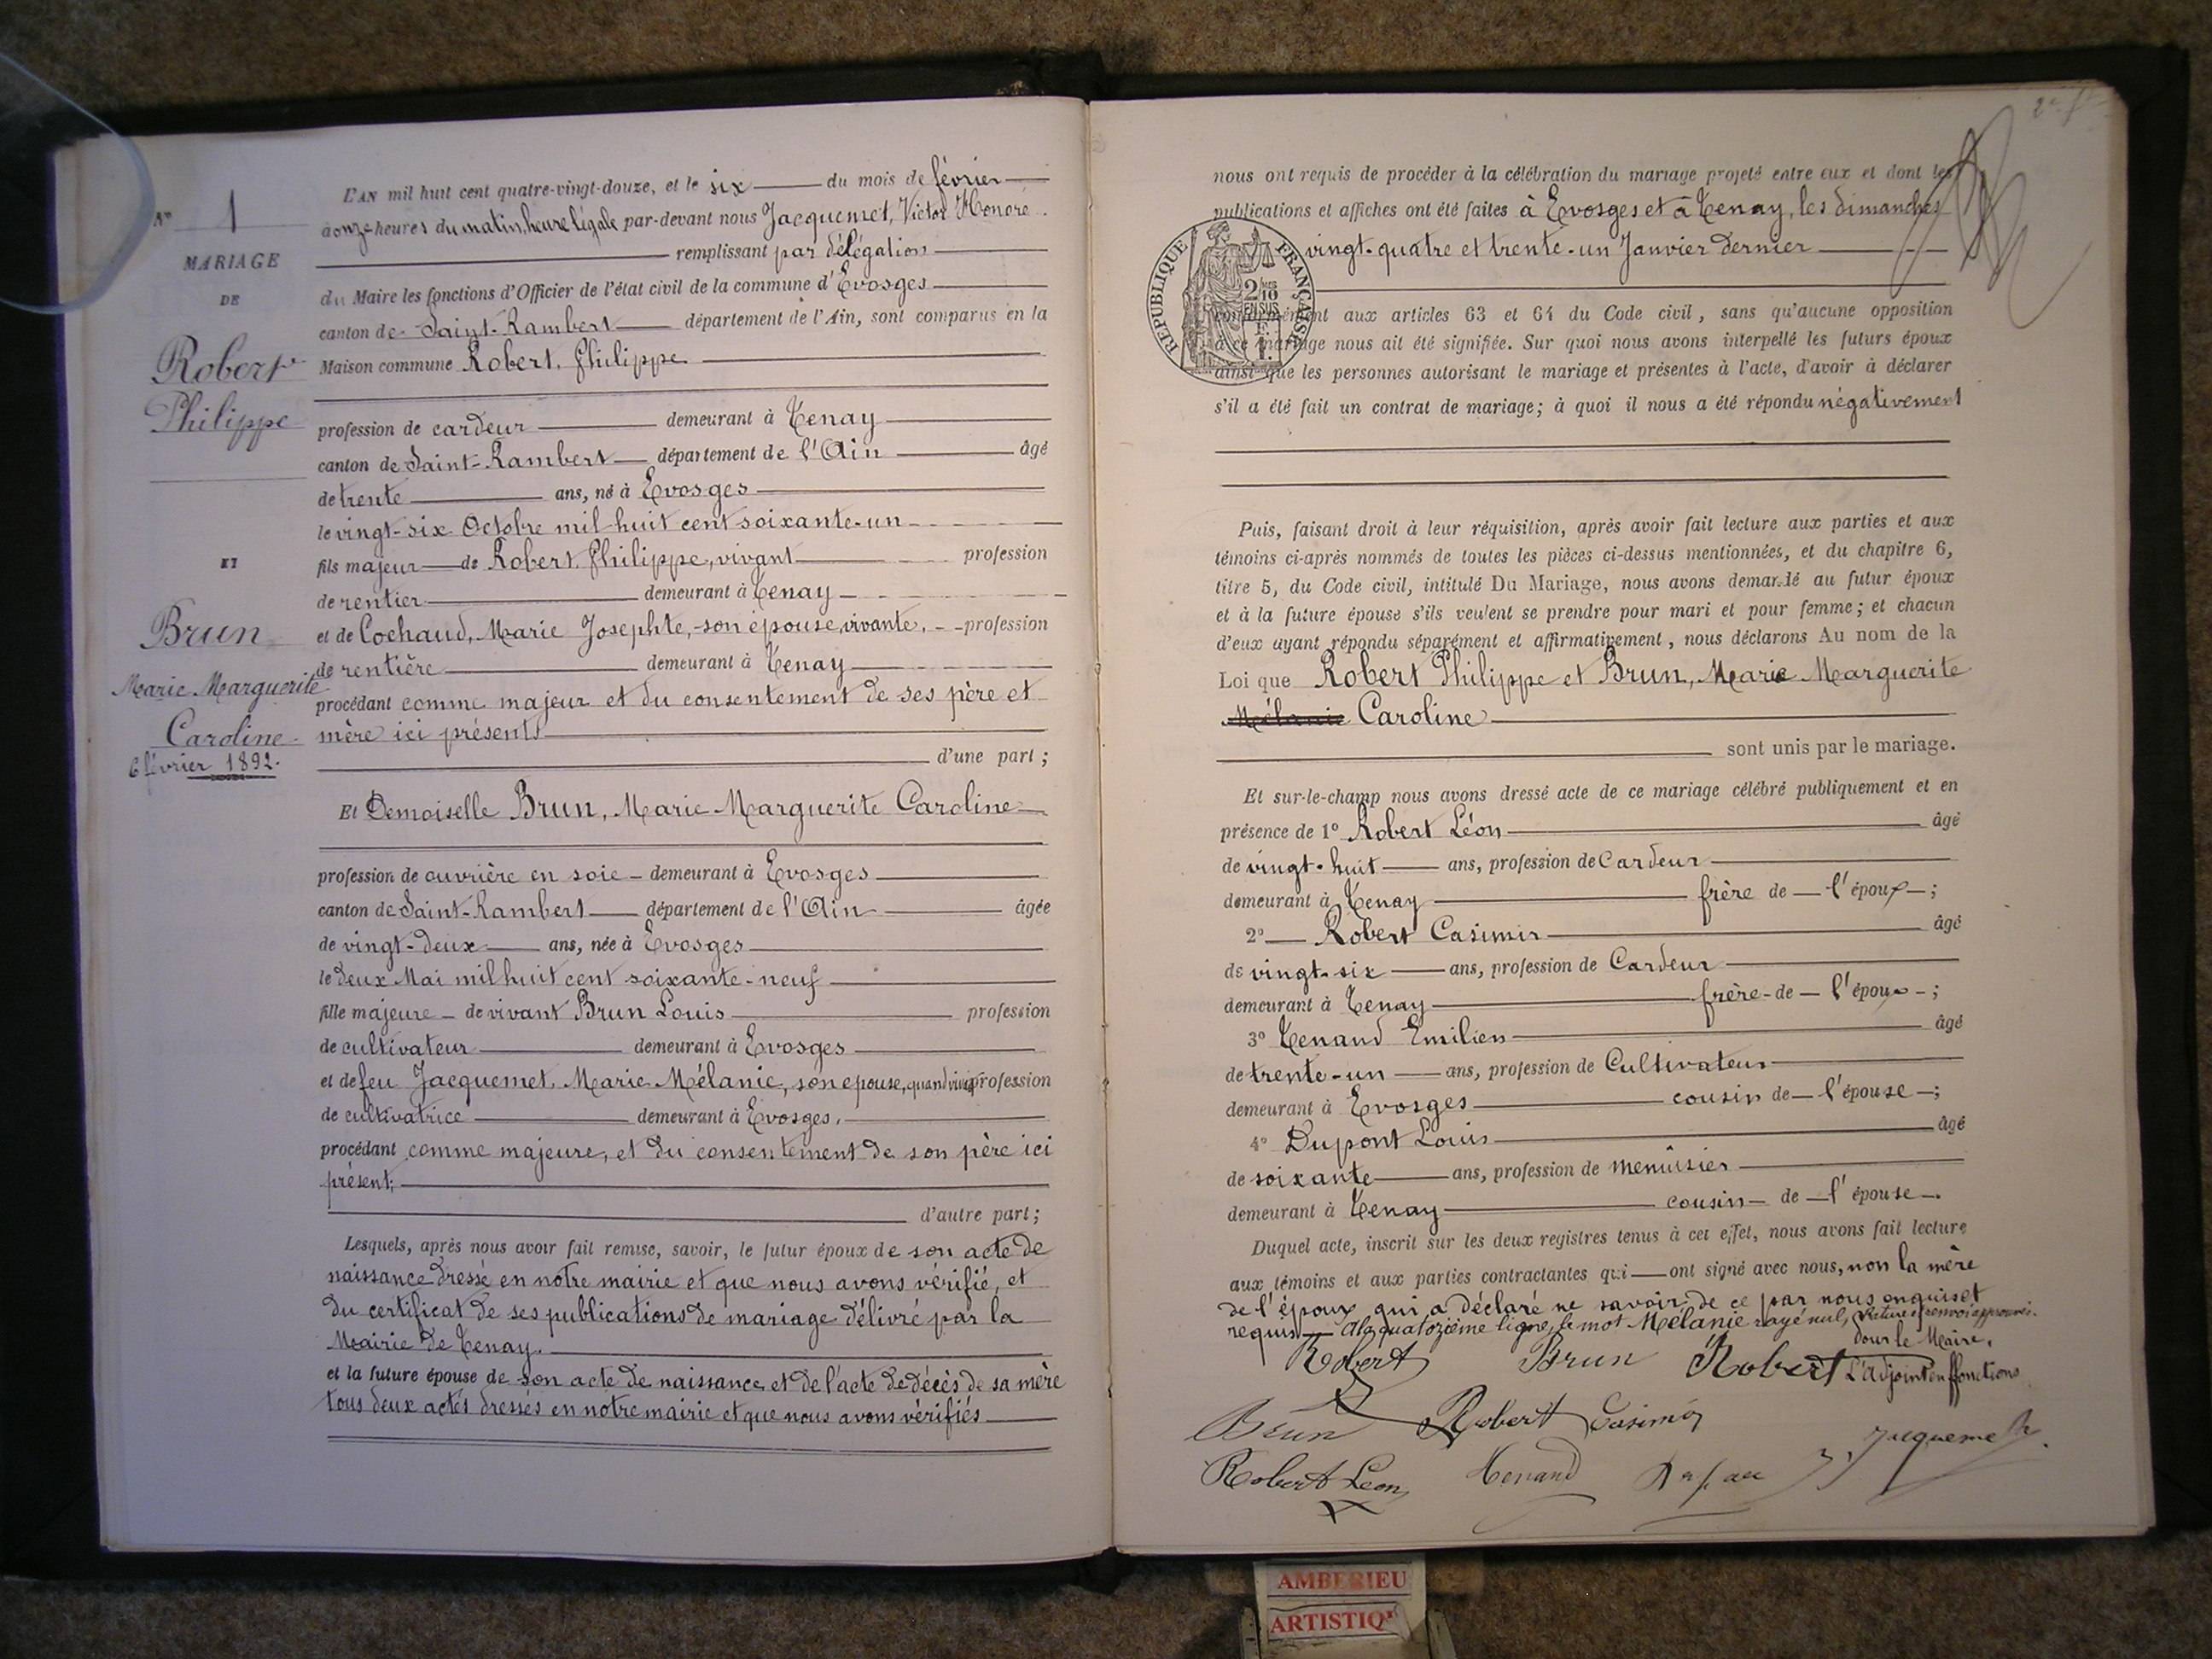 L'AN mil huit cent quatre-vingt-douze, et le six du mois de février
à onze heures du matin, heure légale par-devant nous Jacquemet, Victor Honoré
remplissant par délégation
du Maire les fonctions d'Officier de l'état civil de la commune d'Evosges
canton de Saint-Rambert département de l'Ain, sont comparus en la
Maison commune Robert, Philippe
profession de cardeur demeurant à Tenay
canton de Saint-Rambert département de l'Ain âgé
de trente ans, né à Evosges
le vingt-six Octobre mil huit cent soixante-un
fils majeur de Robert Philippe, vivant profession
de rentier demeurant à Tenay
et de Cochaud, Marie Josephte, son épouse, vivante, profession
de rentière demeurant à Tenay
procédant comme majeur et du consentement de ses père et
mère ici présents
d'une part;
Et Demoiselle Brun, Marie Marguerite Caroline
profession de ouvrière en soie demeurant à Evosges
canton de Saint-Rambert département de l'Ain âgée
de vingt-deux ans, née à Evosges
le deux Mai mil huit cent soixante-neuf
fille majeure de vivant Brun Louis profession
de cultivateur demeurant à Evosges
et de feu Jacquemet, Marie Mélanie, son epouse, quand vivait profession
de cultivatrice demeurant à Evosges.
procédant comme majeure, et du consentement de son père ici
présent;
d'autre part;
Lesquels, après nous avoir fait remise, savoir, le futur époux de son acte de
naissance dressé en notre mairie et que nous avons vérifié, et
du certificat de ses publications de mariage délivré par la
Mairie de Tenay.
et la future épouse de son acte de naissance et de l'acte de décès de sa mère
tous deux actes dressés en notre mairie et que nous avons vérifiés
N° 1
MARIAGE
DE
Robert
Philippe
ET
Brun
Marie Marguerite
Caroline
6 février 1892.
nous ont requis de procéder à la célébration du mariage projeté entre eux et dont les
publications et affiches ont été faites à Evosges et à Tenay, les dimanches
vingt-quatre et trente-un Janvier dernier
conformément aux articles 63 et 64 du Code civil, sans qu'aucune opposition
à ce mariage nous ait été signifiée. Sur quoi nous avons interpellé les futurs époux
ainsi que les personnes autorisant le mariage et présentes à l'acte, d'avoir à déclarer
s'il a été fait un contrat de mariage; à quoi il nous a été répondu négativement
RÉPUBLIQUE FRANÇAISE
2/10
EN SUS
Puis, faisant droit à leur réquisition, après avoir fait lecture aux parties et aux
témoins ci-après nommés de toutes les pièces ci-dessus mentionnées, et du chapitre 6,
titre 5, du Code civil, intitulé Du Mariage, nous avons demandé au futur époux
et à la future épouse s'ils veulent se prendre pour mari et pour femme; et chacun
d'eux ayant répondu séparément et affirmativement, nous déclarons Au nom de la
Loi que Robert Philippe et Brun, Marie Marguerite
Mélanie Caroline
sont unis par le mariage.
Et sur-le-champ nous avons dressé acte de ce mariage célébré publiquement et en
présence de 1° Robert Léon âgé
de vingt-huit ans, profession de Cardeur
demeurant à Tenay frère de l'époux;
2° Robert Casimir âgé
de vingt-six ans, profession de Cardeur
demeurant à Tenay frère de l'époux;
3° Tenand Emilien âgé
de trente-un ans, profession de Cultivateur
demeurant à Evosges cousin de l'épouse;
4° Dupont Louis âgé
de soixante ans, profession de menuisier
demeurant à Tenay cousin de l'épouse.
Duquel acte, inscrit sur les deux registres tenus à cet effet, nous avons fait lecture
aux témoins et aux parties contractantes qui ont signé avec nous, non la mère
de l'époux qui a déclaré ne savoir de ce par nous enquis et
requis A la quatozième ligne, le mot Mélanie rayé nul,
Pour le Maire,
Robert Brun Robert L'adjoint en fonctions
Brun Robert Casimir
Jacquemet
Robert Leon Tenand
AMBERIEU
ARTISTIQ